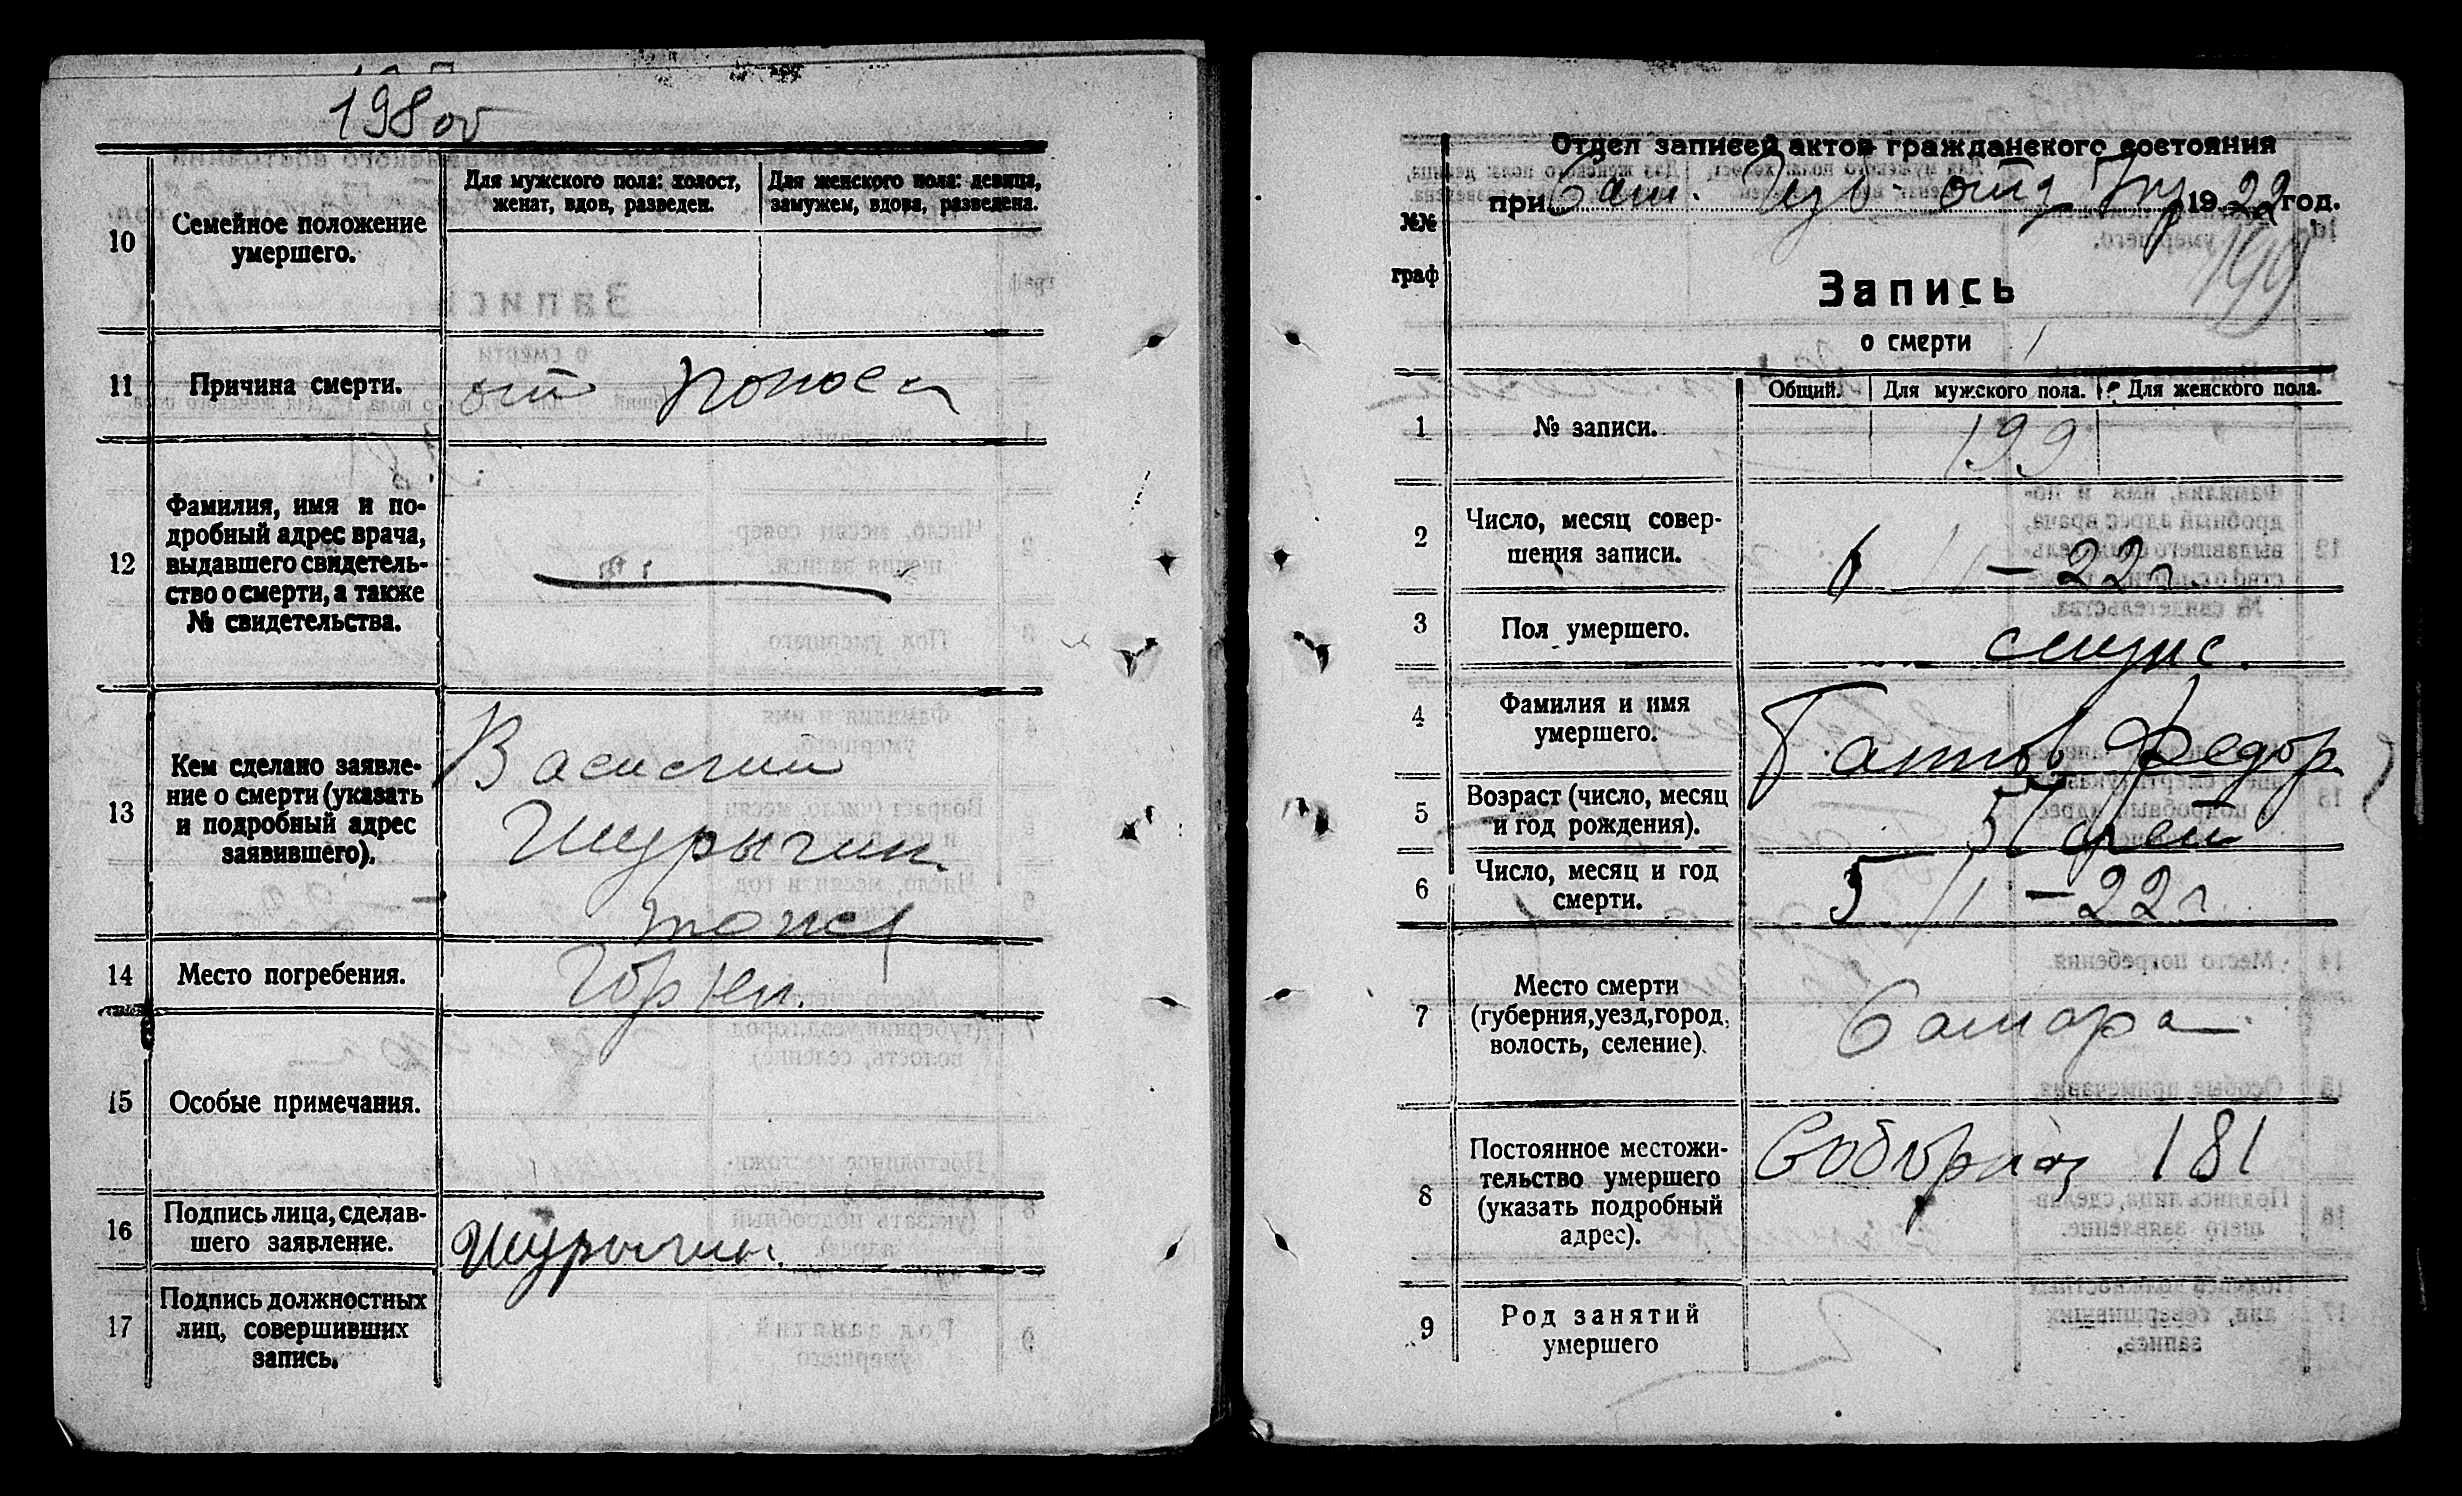 198 об
10
Семейное положение
умершего.
Для мужского пола: холост,
женат, вдов, разведен.
Для женского пола: девица,
замужем, вдова, разведена.
11
Причина смерти.
от поноса
12
Фамилия, имя и по-
дробный адрес врача,
выдавшего свидетель-
ство о смерти, а также
№ свидетельства.
13
Кем сделано заявле-
ние о смерти (указать
и подробный адрес
заявившего).
Василий
Шурыгин
14
Место погребения.
15
Особые примечания.
16
Подпись лица, сделав-
шего заявление.
Шурыгин.
17
Подпись должностных
лиц, совершивших
запись.
Отдел записей актов гражданского состояния
при Сам. 1922 год.
№№
граф
199
Запись
о смерти
1
№ записи.
Общий.
Для мужского пола.
Для женского пола.
199
2
Число, месяц совер-
шения записи.
6 II – 22 г.
3
Пол умершего.
4
Фамилия и имя
умершего.
Федор
5
Возраст (число, месяц
и год рождения).
6
Число, месяц и год
смерти.
5 II – 22 г
7
Место смерти
(губерния, уезд, город,
волость, селение).
Самара.
8
Постоянное местожи-
тельство умершего
(указать подробный
адрес).
Соборная 181
9
Род занятий
умершего